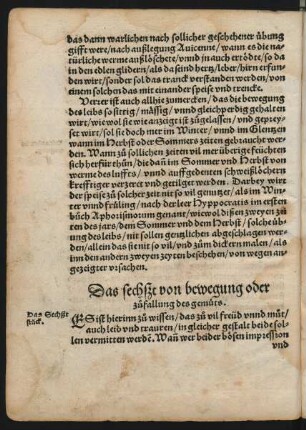 das dann warlichen nach sollicher geschehener übung
gifft were/nach außlegung Auicenne/wann es die na-
türliche werme außlöschete/vnnd in auch erödte/so da
in den edlen glidern/als da seind herz/leber/hirn erfun-
den wirt/sonder sol das tranck verstanden werden/von
einem solchen das mit einander speise vnd trencke.
Verrer ist auch allhie zumercken/das die bewegung
des leibs so stetig/mässig/vnnd gleich perdig gehalten
wirt/wiewol sie wie anzeigt ist zugelassen/vnd geprey-
set wirt/sol sie doch mer im Winter/vnnd im Glentzen
wann im Herbst oder Sommers zeiten gebraucht wer-
den. Wann zů sollichen zeiten vil mer überige feüchten
sich herfür thůn/die dañ im Sommer vnd Herbst von
werme des luffts/vnnd auffgedenten schweißlöchern
krefftiger verzert vnd gertilget werden. Darbey wirt
der speise zů solcher zeit nit so vil genützt/als im Win-
ter vnd früling/nach der leer Hyppocratis im ersten
bůch Aphorismorum genant/wiewol dißen zweyen zů
ten des jars/dem Sommer vnd dem Herbst/solche üb-
ung des leibs/nit sollen gentzlichen abgeschlagen wer-
den/allein das sie nit so vil/vnd zům dickern malen/als
inn den andern zweyen zeyten beschehen/von wegen an-
gezeigter vrsachen.
Das sechßt von bewegung oder
zůfallung des gemüts.
Das Sechßt
stück.
ES ist hierinn zů wissen/das zů vil freüd vnnd můt/
auch leid vnd trauren/in gleicher gestalt beide sol-
len vermitten werdē. Wañ wer beider bösen impression
vnd